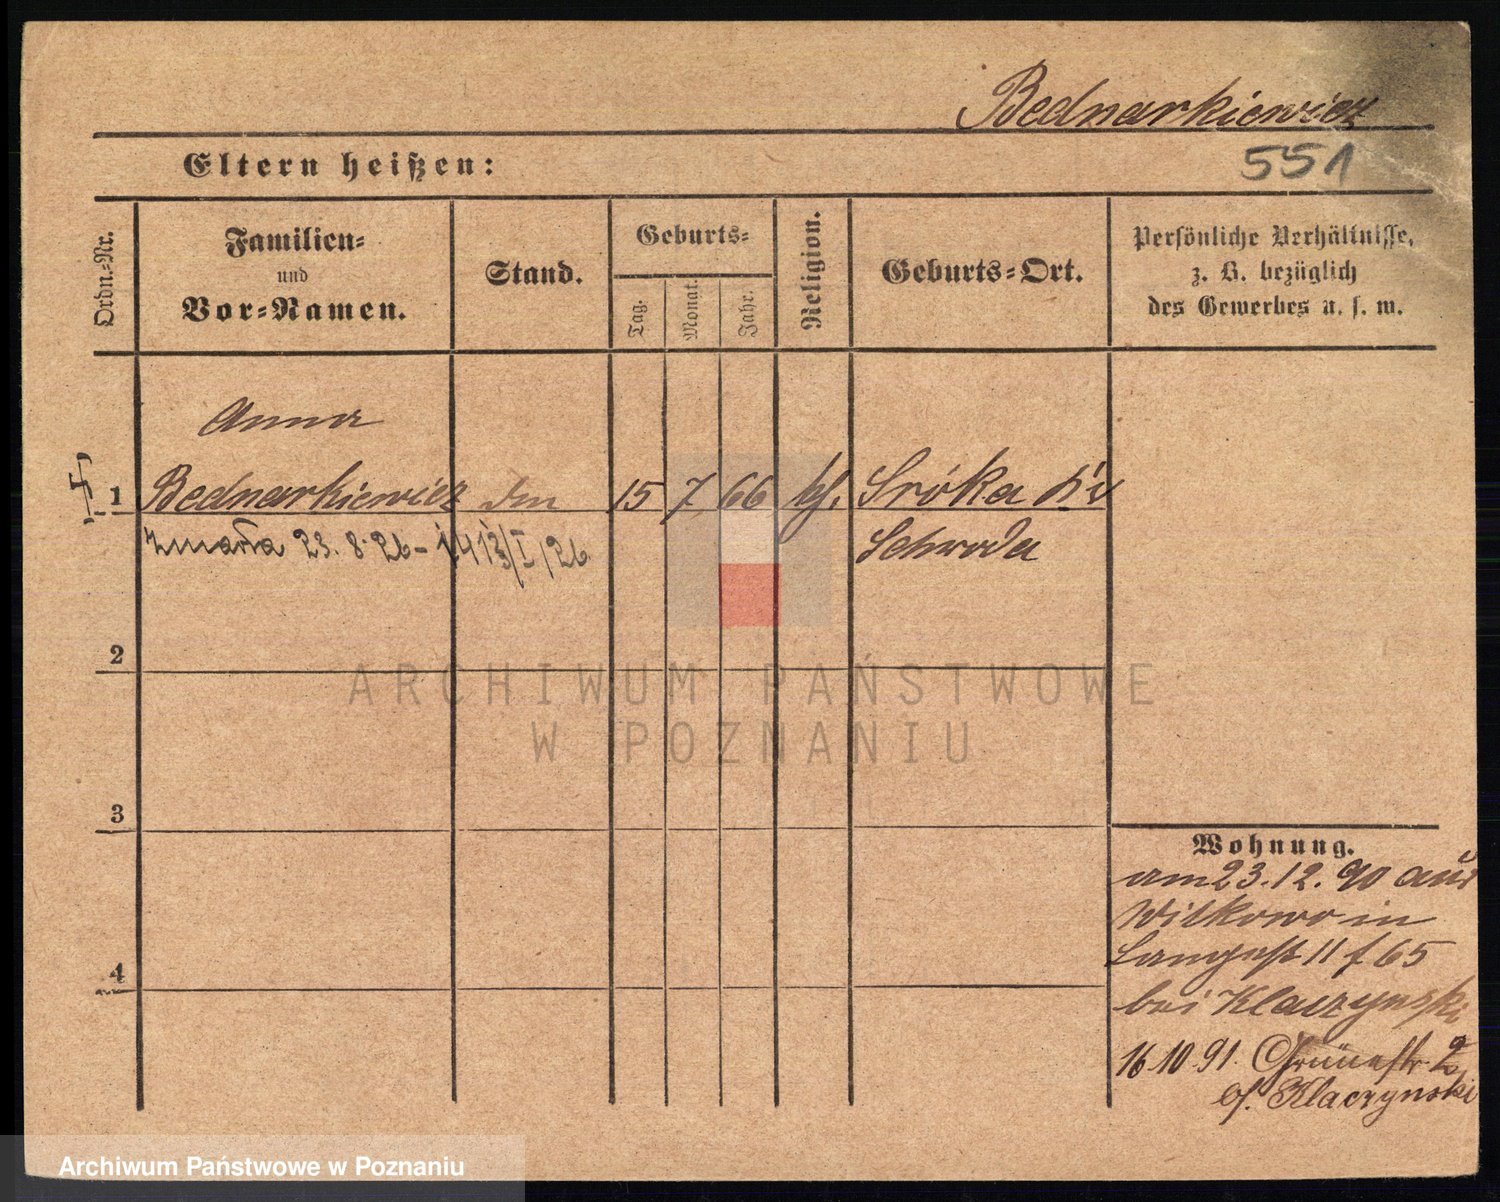 Bednarkiewicz
551
Eltern heißen:
Ordn.-Nr.
Familien-
und
Vor-Namen.
Stand.
Geburts-
Tag.
Monat.
Jahr.
Religion.
Geburts-Ort.
Persönliche Verhältnisse,
z. B. bezüglich
des Gewerbes u. s. w.
Anna
1 Bednarkiewicz 15 7 66 Sróka
zmarła 23. 8. 26 - 1413/I/26
Schroda
2
3
4
Wohnung.
am 23. 12. 90 aus
Witkowo in
Langestr 11 f 65
bei Klaczynski
16.10.91. Grünestr. 2
b/. Klaczynski
ARCHIWUM PAŃSTWOWE
W POZNANIU
Archiwum Państwowe w Poznaniu